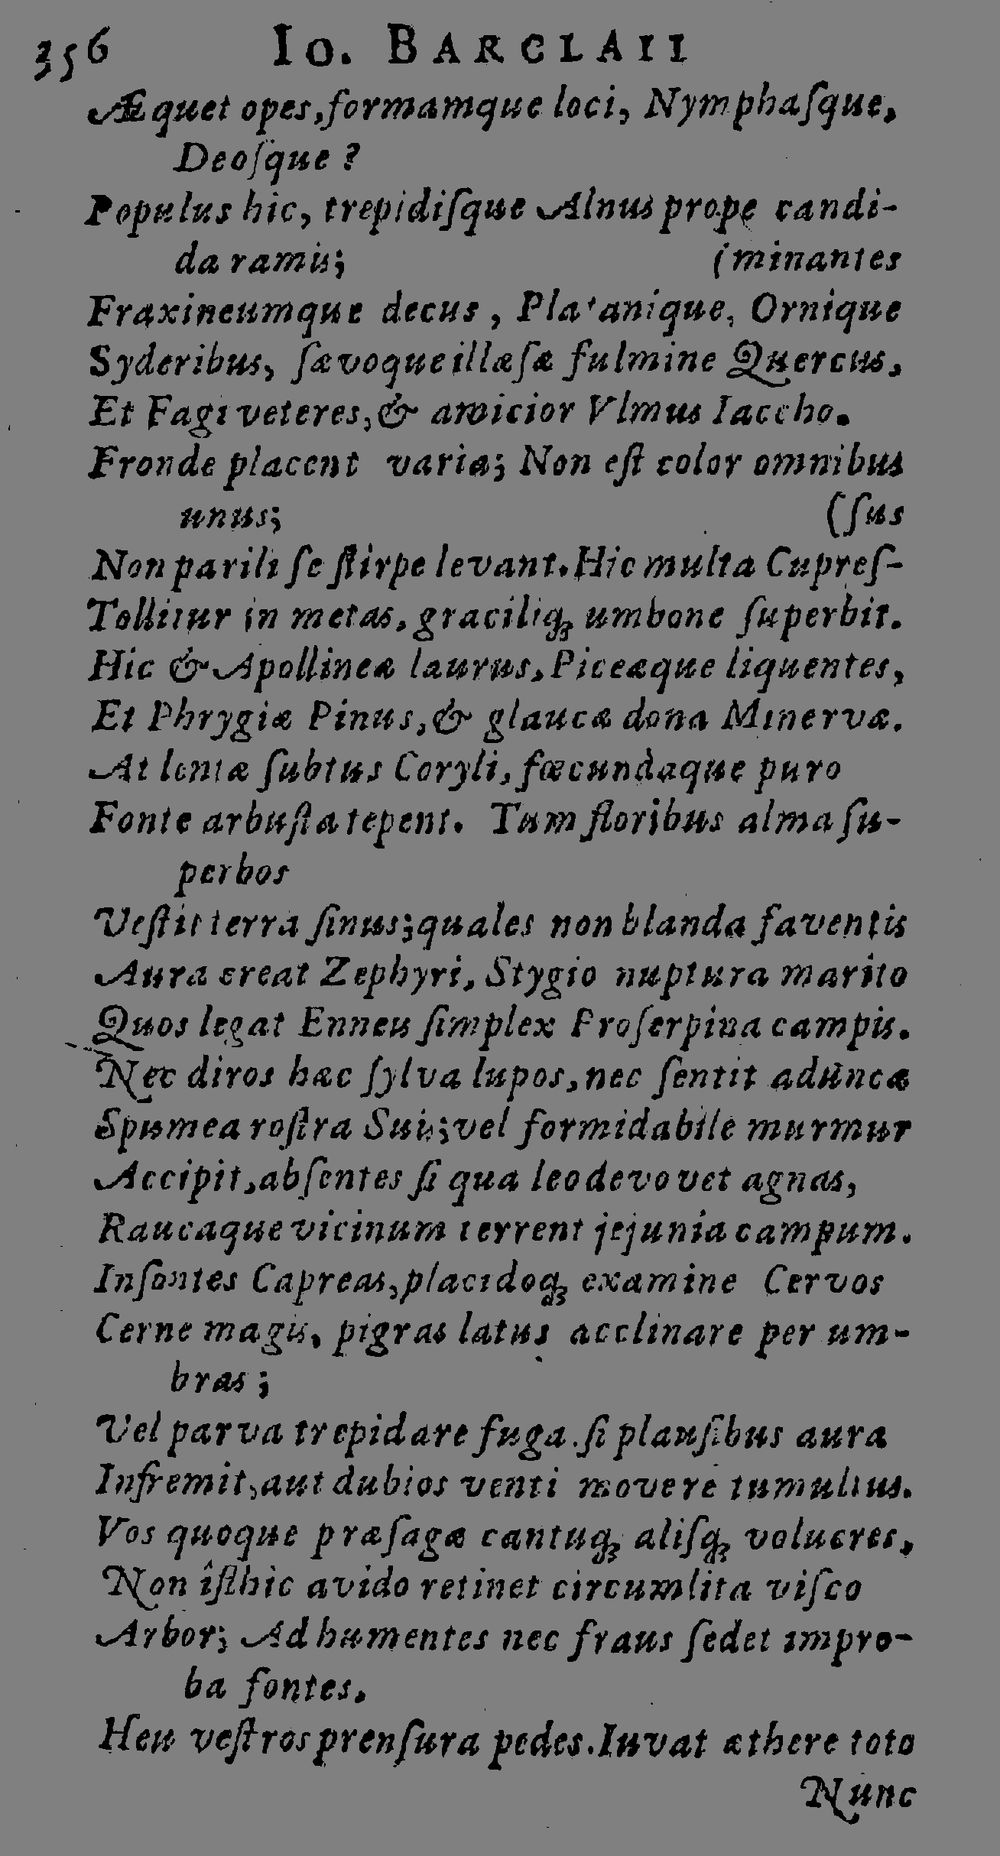 356 Io. BARCLAII
Æquet opes, formamque loci, Nymphaſque,
Deoſque?
Populus hic, trepidiſque Alnus prope candi-
da ramis; (minantes
Fraxineumque decus, Platanique, Ornique
Syderibus, ſævoque illæſæ fulmine Quercus,
Et Fagi veteres, & amicior Vlmus Iaccho.
Fronde placent varia; Non eſt color omnibus
unus; (ſus
Non parili ſe ſtirpe levant. Hic multa Cupreſ-
Tollitur in metas, graciliq; umbone ſuperbit.
Hic & Apollineæ laurus, Piceæque liquentes,
Et Phrygiæ Pinus, & glaucæ dona Minervæ.
At lentæ ſubtus Coryli, fœcundaque puro
Fonte arbuſta tepent. Tum floribus alma ſu-
perbos
Veſtit terra ſinus; quales non blanda faventis
Aura creat Zephyri, Stygio nuptura marito
Quos legat Enneis ſimplex Proſerpina campis.
Nec diros hæc ſylva lupos, nec ſentit aduncæ
Spumea roſtra Suis; vel formidabile murmur
Accipit, abſentes ſi qua leo devovet agnas,
Raucaque vicinum terrent jejunia campum.
Inſontes Capreas, placidoq; examine Cervos
Cerne magis, pigras latus acclinare per um-
bras;
Vel parva trepidare fuga. ſi plauſibus aura
Infremit, aut dubios venti movere tumultus.
Vos quoque præſagæ cantuq; aliſq; volucres,
Non îſthic avido retinet circumlita viſco
Arbor; Ad humentes nec fraus ſedet impro-
ba fontes.
Heu veſtros prenſura pedes. Iuvat æthere toto
Nunc